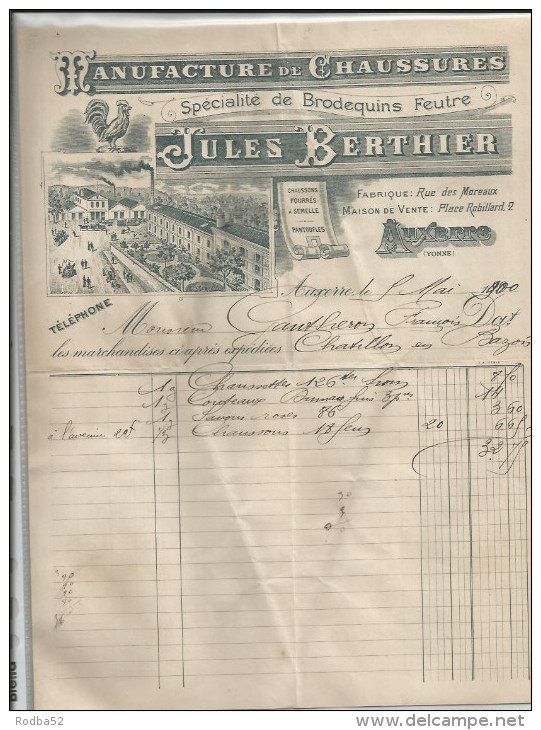 MANUFACTURE DE CHAUSSURES
Spécialité de Brodequins Feutre
JULES BERTHIER
CHAUSSONS
FOURRÉS
& SEMELLE
PANTOUFLES
FABRIQUE: Rue des Moreaux
MAISON DE VENTE: Place Robillard, 2
AUXERRE
(YONNE)
TÉLÉPHONE
Auxerre le 5 Mai 1900
Monsieur François Doit
les marchandises ci-après expédiées Chatillon en Bazois
Chaussettes 126
14
Savoyes roses 86 3 60
à l'avenir Chaussons 18 20 6 65
32 75
Rodba52
www.delcampe.net